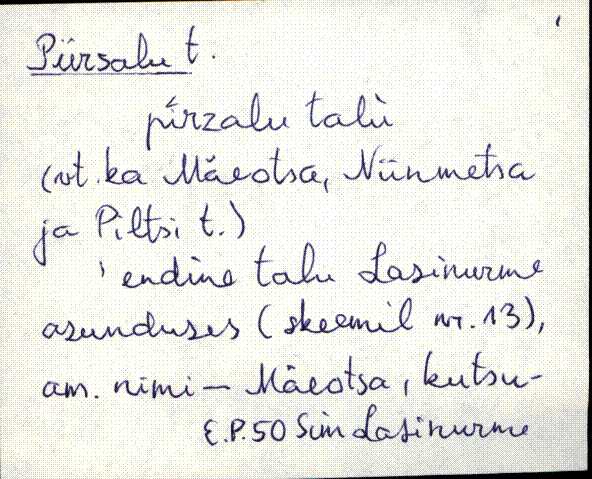 Piirsalu t.
pı̄rzalu talù
(vt. ka Mäeotsa, Niinmetsa
ja Piltsi t.)
' endine talu Lasinurme
asunduses (skeemil nr. 13),
am. nimi — Mäeotsa, kutsu-
E.P. 50 Sim Lasinurme